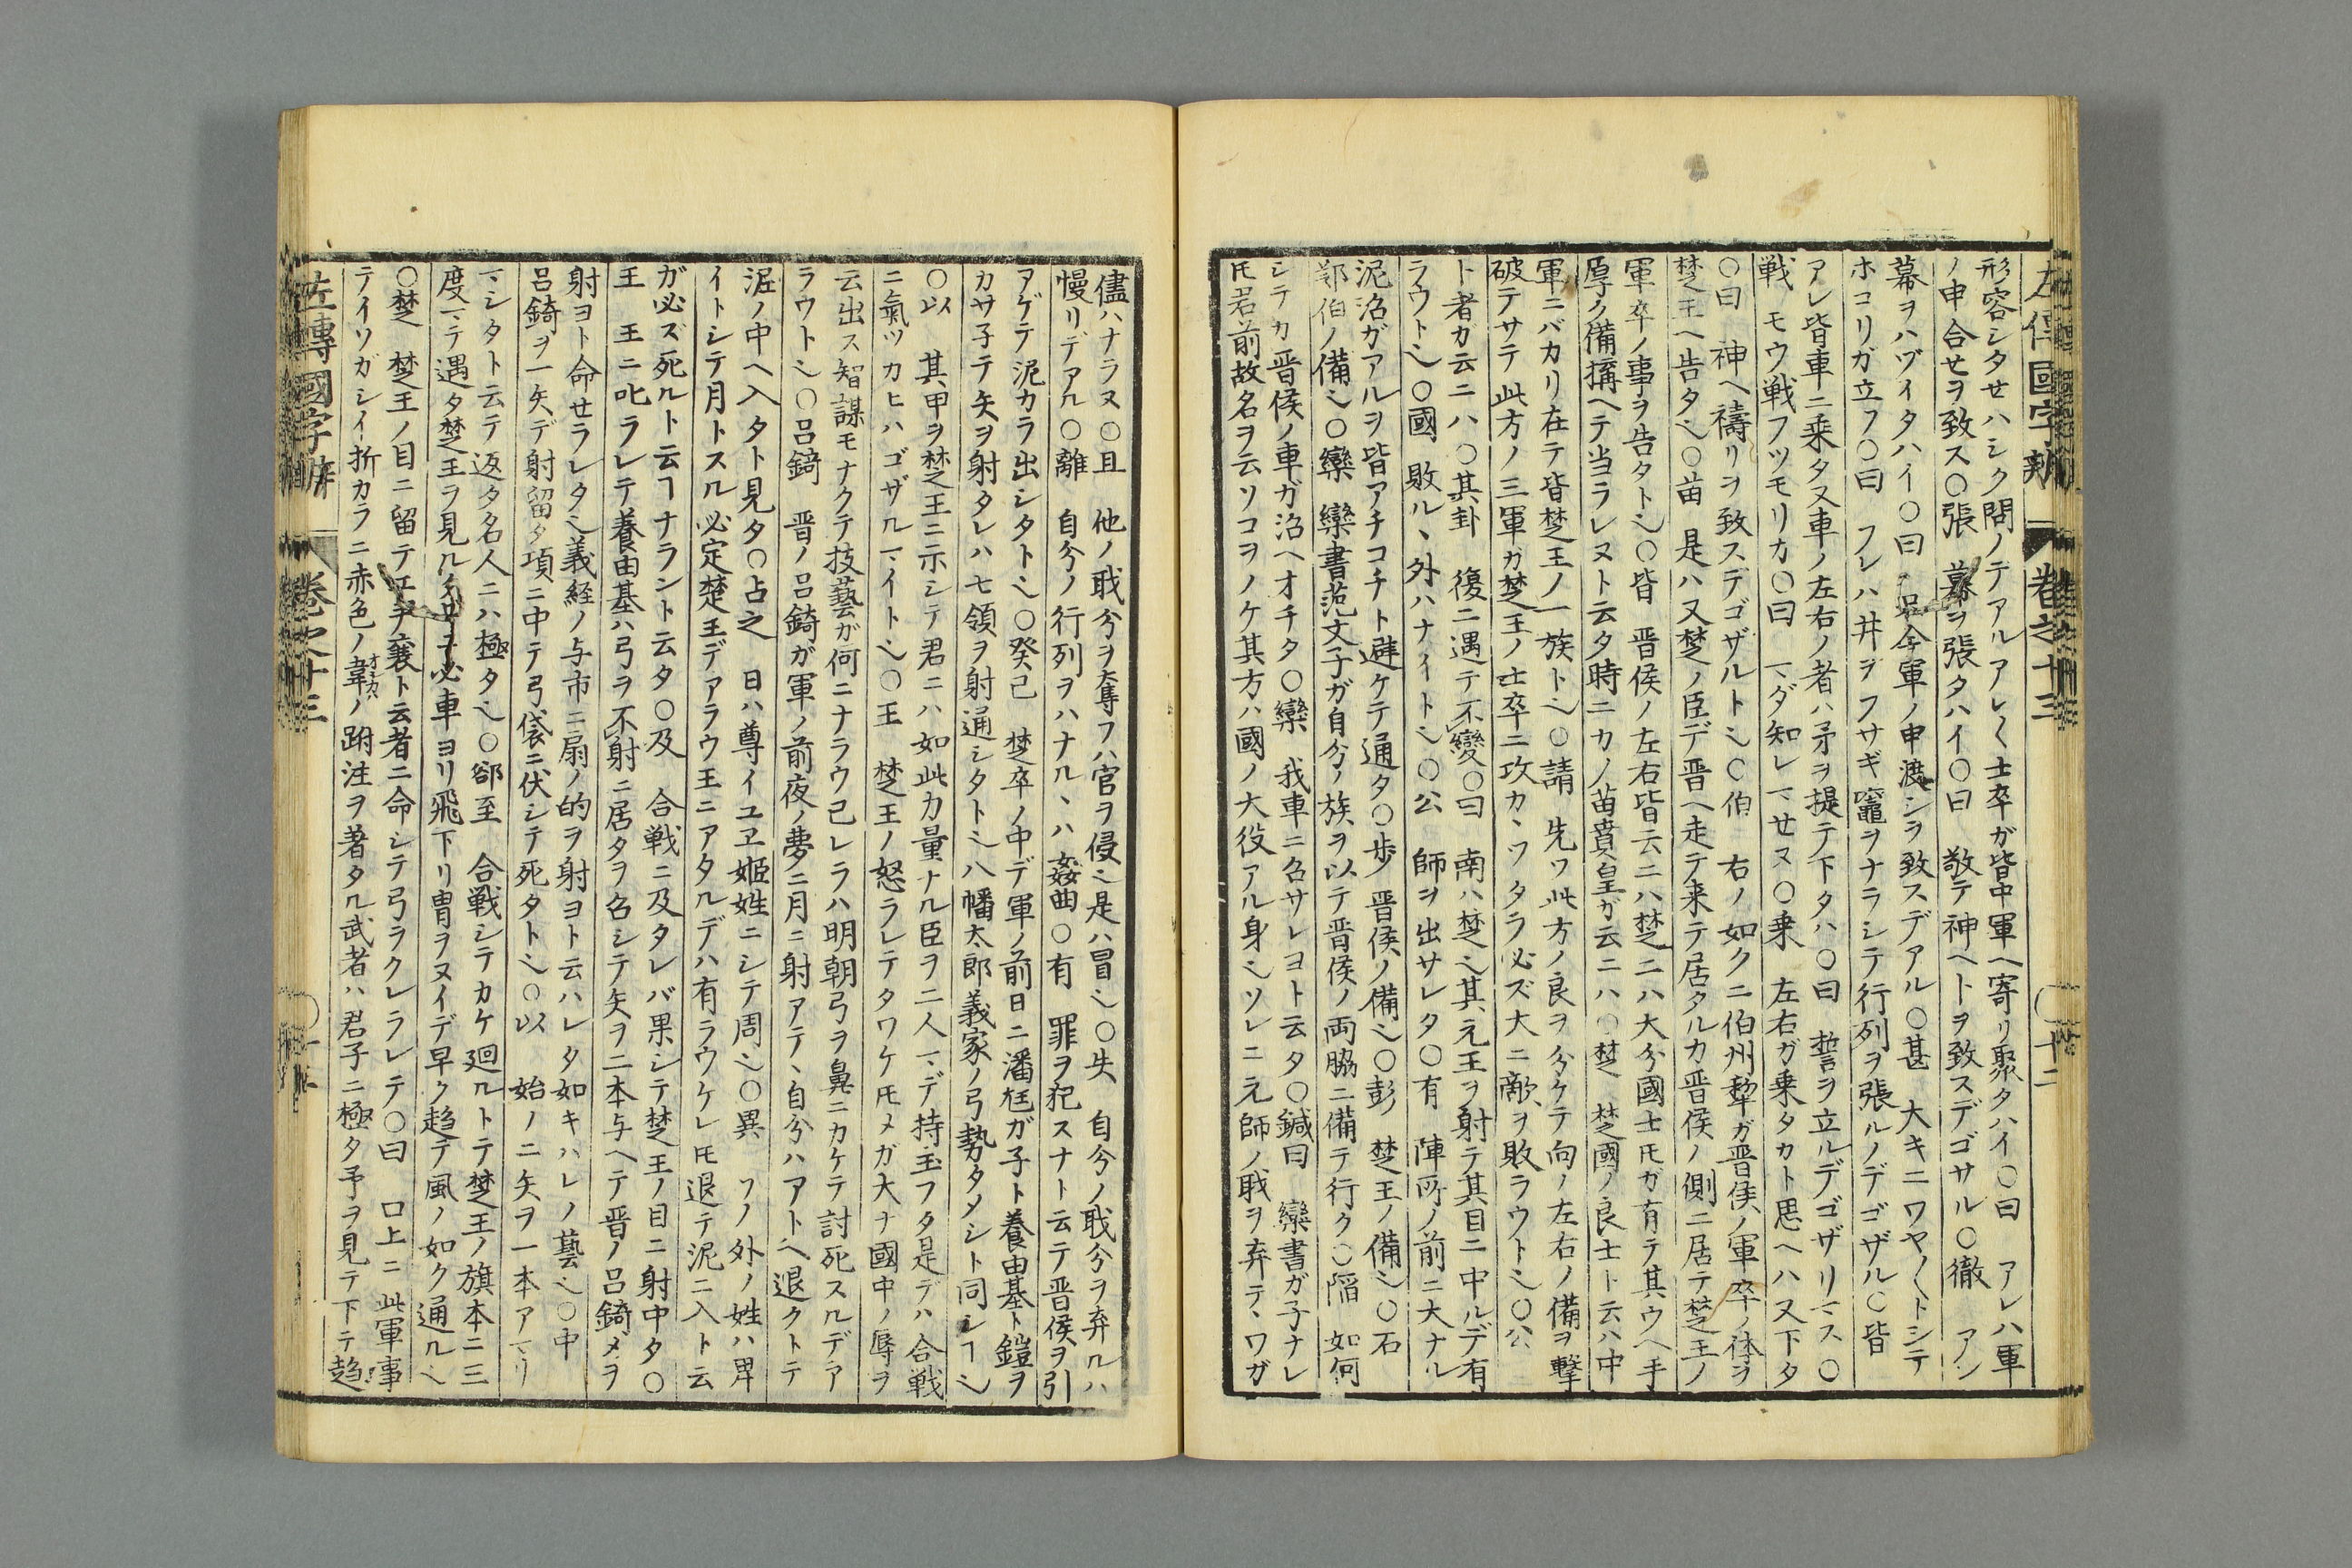 左傳國字辨 卷之十三 十二
形容シタセハシク問ノテアルアレ〱士卒ガ皆中軍ヘ寄リ聚タハイ〇曰 アレハ軍
ノ申合セヲ致ス〇張 幕ヲ張タハイ〇曰 敬テ神ヘトヲ致スデゴサル〇徹 アン
幕ヲハヅイタハイ〇曰 只今軍ノ申渡シヲ致スデアル〇甚 大キニワヤ〱トシテ
ホコリガ立フ〇曰 フレハ井ヲフサギ竈ヲナラシテ行列ヲ張ルノデゴザル〇皆
アレ皆車ニ乗タ又車ノ左右ノ者ハ矛ヲ提テ下タハ〇曰 誓ヲ立ルデゴザリマス〇
戦 モウ戦フツモリカ〇曰 マダ知レマセヌ〇乗 左右ガ乗タカト思ヘハ又下タ
〇曰 神ヘ禱リヲ致スデゴザルト〇伯 右ノ如クニ伯州犂ガ晋侯ノ軍卒ノ体ヲ
楚王ヘ告タ〇苗 是ハ又楚ノ臣デ晋ヘ走テ来テ居タルカ晋侯ノ側ニ居テ楚王ノ
軍卒ノ事ラ告タト〇皆 晋侯ノ左右皆云ニハ楚ニハ大分國士𪜈ガ有テ其ウヘ手
厚ク備搆ヘテ当ラレヌト云タ時ニカノ苗賁皇ガ云ニハ〇楚 楚國ノ良士ト云ハ中
軍ニバカリ在テ皆楚王ノ一族ト〇請 先ワ此方ノ良ヲ分ケテ向ノ左右ノ備ヲ撃
破テサテ此方ノ三軍ガ楚王ノ士卒ニ攻カヽワタラ必ズ大ニ敵ヲ敗ラウト〇公
ト者ガ云ニハ〇其卦 復ニ遇テ不變〇曰 南ハ楚其元王ヲ射テ其目ニ中ルデ有
ラウト〇國 敗ルヽ外ハナイト〇公 師ヲ出サレタ〇有 陣所ノ前ニ大ナル
泥沼ガアルヲ皆アチコチト避ケテ通タ〇歩 晋侯ノ備〇彭 楚王ノ備〇石
鄭伯ノ備〇欒 欒書范文子ガ自分ノ族ヲ以テ晋侯ノ両脇ニ備テ行ク〇陥 如何
シテカ晋侯ノ車ガ沼ヘオチタ〇欒 我車ニ召サレヨト云タ〇鍼曰 欒書ガ子ナレ
𪜈君前故名ヲ云ソコヲノケ其方ハ國ノ大役アル身ソレニ元師ノ戠ヲ弃テヽワガ
儘ハナラヌ〇且 他ノ戠分ヲ奪フハ官ヲ侵是ハ冒〇失 自分ノ戠分ヲ弃ルハ
慢リデアル〇離 自分ノ行列ヲハナルヽハ姦曲〇有 罪ヲ犯スナト云テ晋侯ヲ引
アゲテ泥カラ出シタト〇癸己 楚卒ノ中デ軍ノ前日ニ潘尫ガ子ト養由基ト鎧ヲ
カサ子テ矢ヲ射タレハ七領ヲ射通シタト八幡太郎義家ノ弓勢タメシト同シヿ
〇以 其甲ヲ楚王ニ示シテ君ニハ如此力量ナル臣ヲ二人マデ持玉フタ是デハ合戦
ニ氣ツカヒハゴザルマイト〇王 楚王ノ怒ラレテタワケ𪜈メガ大ナ國中ノ辱ヲ
云出ス智謀モナクテ技藝ガ何ニナラウ己レラハ明朝弓ヲ鼻ニカケテ討死スルデア
ラウト〇呂錡 晋ノ呂錡ガ軍ノ前夜ノ夢ニ月ニ射アテヽ自分ハアトヘ退クトテ
泥ノ中ヘ入タト見タ〇占之 日ハ尊イユヱ姫姓ニシテ周〇異 フノ外ノ姓ハ卑
イトシテ月トスル必定楚王デアラウ王ニアタルデハ有ラウケレ𪜈退テ泥ニ入ト云
ガ必ズ死ルト云ヿナラント云タ〇及 合戦ニ及タレバ果シテ楚王ノ目ニ射中タ〇
王 王ニ叱ラレテ養由基ハ弓ヲ不射ニ居タヲ召シテ矢ヲ二本与ヘテ晋ノ呂錡メヲ
射ヨト命セラレタ義経ノ与市ニ扇ノ的ヲ射ヨト云ハレタ如キハレノ藝〇中
呂錡ヲ一矢デ射留タ項ニ中テ弓袋ニ伏シテ死タト〇以 始ノ二矢ヲ一本アマリ
マシタト云テ返タ名人ニハ極タ〇郤至 合戦シテカケ廻ルトテ楚王ノ旗本ニ三
度マテ遇タ楚王ラ見ル必車ヨリ飛下リ冑ヲヌイデ早ク趋テ風ノ如ク通ル
〇楚 楚王ノ目ニ留テエ尹襄ト云者ニ命シテ弓ラクレラレテ〇曰 口上ニ此軍事
テイソガシイ折カラニ赤色ノ韋ノ跗注ヲ著タル武者ハ君子ニ極タ予ヲ見テ下テ趋
左傳國字辨 卷之十三